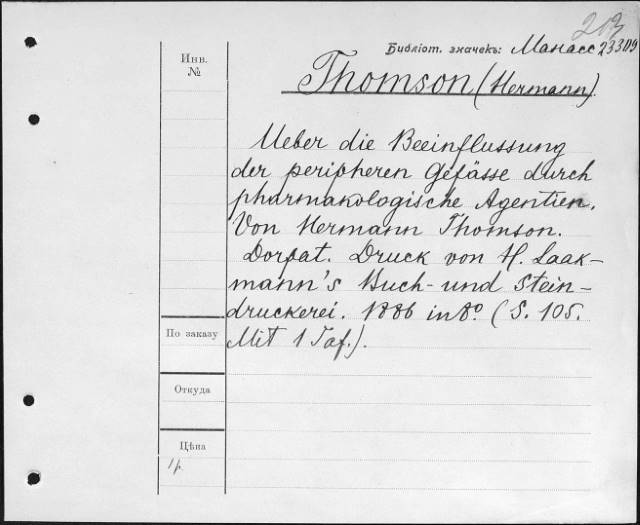 213
Библіот. значекъ: Манасс 23309
Инв. №
Thomson (Hermann).
Ueber die Beeinflussung
der peripheren Gefässe durch
pharmakologische Agentien.
Von Hermann Thomson.
Dorpat. Druck von H. Laak-
mann's Buch- und Stein-
druckerei. 1886 in 8º (S. 105.
Mit 1 Taf.).
По заказу
Откуда
Цѣна
1 р.